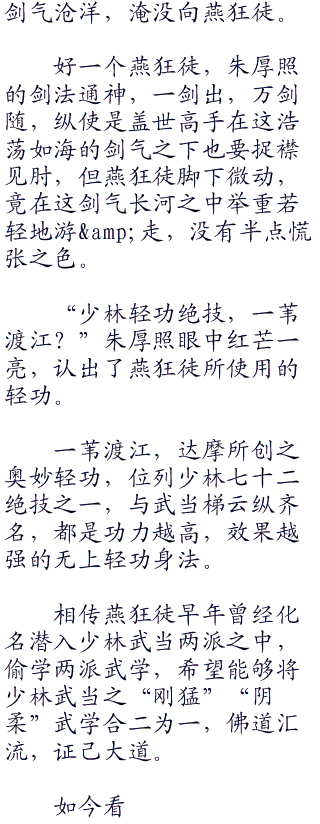 剑气沧洋，淹没向燕狂徒。
好一个燕狂徒，朱厚照
的剑法通神，一剑出，万剑
随，纵使是盖世高手在这浩
荡如海的剑气之下也要捉襟
见肘，但燕狂徒脚下微动，
竟在这剑气长河之中举重若
轻地游&amp;走，没有半点慌
张之色。
“少林轻功绝技，一苇
渡江？”朱厚照眼中红芒一
亮，认出了燕狂徒所使用的
轻功。
一苇渡江，达摩所创之
奥妙轻功，位列少林七十二
绝技之一，与武当梯云纵齐
名，都是功力越高，效果越
强的无上轻功身法。
相传燕狂徒早年曾经化
名潜入少林武当两派之中，
偷学两派武学，希望能够将
少林武当之“刚猛”“阴
柔”武学合二为一，佛道汇
流，证己大道。
如今看